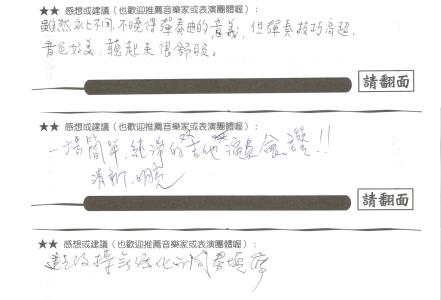 ★★ 感想或建議（也歡迎推薦音樂家或表演團體喔）：
雖然 不同，不曉得彈奏曲的意義，但彈奏技巧高超，
音色好美，聽起來很舒服。
請翻面
★★ 感想或建議（也歡迎推薦音樂家或表演團體喔）：
一場簡單、純淨的吉他演奏會，讚!!
清新、明亮
請翻面
★★ 感想或建議（也歡迎推薦音樂家或表演團體喔）：